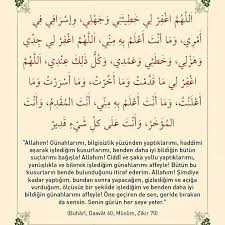 اللَّهُمَّ اغْفِرْ لِي خَطِيئَتِي وَجَهْلِي، وَإِسْرَافِي فِي
أَمْرِي، وَمَا أَنْتَ أَعْلَمُ بِهِ مِنِّي، اللَّهُمَّ اغْفِرْ لِي جِدِّي
وَهَزْلِي، وَخَطَئِي وَعَمْدِي، وَكُلُّ ذَلِكَ عِنْدِي، اَللَّهُمَّ
اغْفِرْ لِي مَا قَدَّمْتُ وَمَا أَخَّرْتُ، وَمَا أَسْرَرْتُ وَمَا
أَعْلَنْتُ، وَمَا أَنْتَ أَعْلَمُ بِهِ مِنِّي، أَنْتَ الْمُقَدِّمُ، وَأَنْتَ
الْمُؤَخِّرُ، وَأَنْتَ عَلَى كُلِّ شَيْءٍ قَدِيرٌ
"Allahım! Günahlarımı, bilgisizlik yüzünden yaptıklarımı, haddimi
aşarak işlediğim kusurlarımı, benden daha iyi bildiğin bütün
suçlarımı bağışla! Allahım! Ciddî ve şaka yollu yaptıklarımı,
yanlışlıkla ve bilerek işlediğim günahlarımı affeyle! Bütün bu
kusurların bende bulunduğunu itiraf ederim. Allahım! Şimdiye
kadar yaptığım, bundan sonra yapacağım, gizlediğim ve açığa
vurduğum, ölçüsüz bir şekilde işlediğim ve benden daha iyi
bildiğin günahlarımı affeyle! Öne geçiren de sen, geride bırakan
da sensin. Senin gücün her şeye yeter."
(Buhârî, Daavât 60; Müslim, Zikir 70)